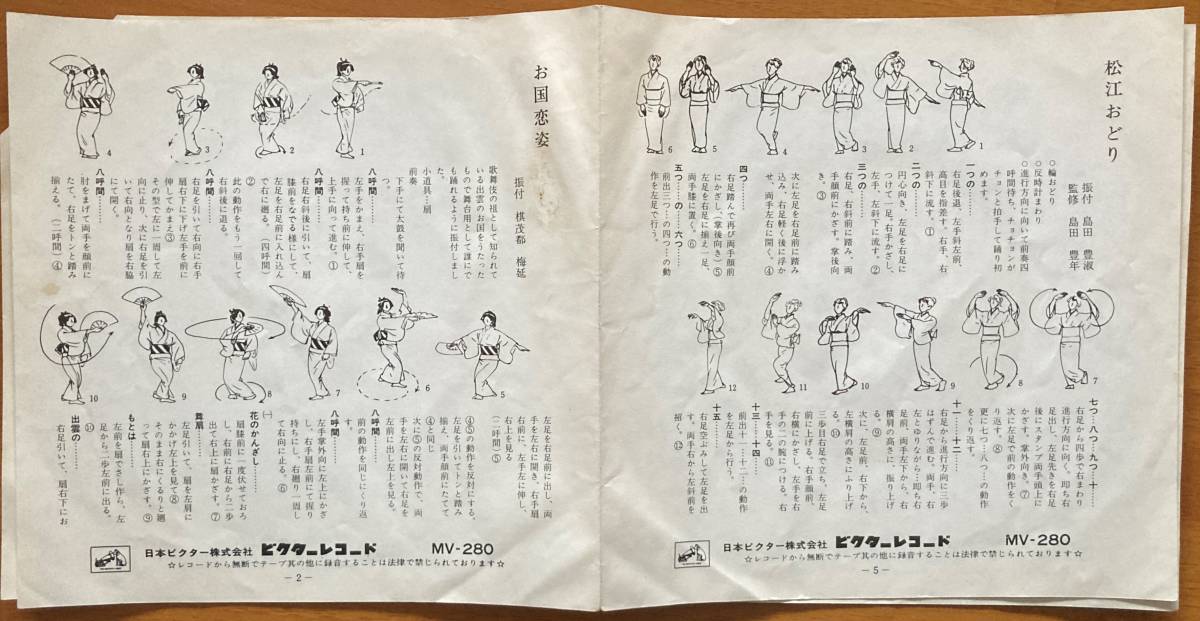 松江おどり
振付 島田 豊淑
監修 島田 豊年
○輪おどり
○反時計まわり
○進行方向に向いて前奏四
呼間待ち、チョチョンが
チョンと拍手して踊り初
めます。
一つの…………
右足後退、左手斜左前、
高目を指差す。右手、右
斜下に流す。①
二つの…………
円心向き、左足を右足に
つけて一足。右手かざし、
左手、左斜下に流す。②
三つの…………
右足、右斜前に踏み、両
手顔前にかざす。掌後向
き。③
次に左足を右足前に踏み
込み、右足軽く後に浮か
せ、両手左右に開く。④
四つ…………
右足踏んで再び両手顔前
にかざし、（掌後向き）⑤
左足を右足に揃え一足、
両手膝に置く。⑥
五つ……の……六つ……
前出三つ…の四つ…の動
作を左足で行う。
1
2
3
4
5
6
七つ…八つ…九つ…十……
右足から四歩で右まわり
進行方向に向く。即ち右
足出し、左足先きを右足
後にスタンプ両手頭上に
かざす。掌外向き。⑦
次に左足で前の動作をく
り返す。⑧
更に七つ…八つ…の動作
をくり返す。
十一…十二……
右足から進行方向に三歩
はずんで進む。両手、右
左とゆりながら…即ち右
足前、両手左下から、右
横肩の高さに、振り上げ
る。⑨
次に、左足前、右下から、
左横肩の高さにふり上げ
る。⑩
三歩目右足で立ち、左足
前に上げる。右手顔前、
右横にかざし、左手を右
手の二の腕につける。右
手を見る。⑪
十三…十四……
前出十一…十二…の動作
を左足から行う。
十五……
右足空ぶみして左足を出
す。両手右から左斜前を
招く。⑫
7
8
9
10
11
12
日本ビクター株式会社 ビクターレコード MV-280
☆レコードから無断でテープ其の他に録音することは法律で禁じられております☆
－5－
お国恋姿
振付 棋茂都 梅延
歌舞伎の祖として知られて
いる出雲のお国をうたった
もので舞台用として誰にで
も踊れるように振付しまし
た。
小道具…扇
前奏
下手にて太鼓を聞いて待
つ。
八呼間……
左手をかまえ、右手扇を
握って持ち前に伸して、
上手に向って進む。①
八呼間……
右足右斜後に引いて、扇
膝前をなでる様にして、
左足を右足前に入れ込ん
で右に廻る。（四呼間）
②
此の動作をもう一回して
右斜後に退る。
八呼間……
右足を引いて右向に右手
扇右下に下げ左手を前に
伸してかまえ③
その型で左に一周して左
向に止り、次に右足を引
いて右向となり扇を右脇
にて開く。
八呼間……
肘をまげて両手を顔前に
たて、右足をトンと踏み
揃える。（二呼間）④
1
2
3
4
左足を右足前に出し、両
手を左右に開き、右手扇
を右前に、左手左に伸し、
右上を見る
（二呼間）⑤
④⑤の動作を反対にする。
左足を引いてトンと踏み
揃え、両手顔前にたてて
④と同じ
次に⑤の反対動作で、両
手を左右に開いて右足を
左前に出し左上を見る。
八呼間……
前の動作を同じにくり返
す。
八呼間……
左手掌外向に左上にかざ
し、右手扇左前にて握り
持ちにし、右廻り一周し
て右向に止る。⑥
(一)
花のかんざし……
扇膝前に一度伏せておろ
し、右前に右足から二歩
出て右上に扇かざす。⑦
舞扇……
左足引いて、扇を左肩に
かかげ左上を見て⑧
そのまま右にくるりと廻
って扇右上にかざす。⑨
もとは……
左前を扇でさし作ら、左
足から二歩左前に出る。
⑩
出雲の……
右足引いて、扇右下にお
5
6
7
8
9
10
日本ビクター株式会社 ビクターレコード MV-280
☆レコードから無断でテープ其の他に録音することは法律で禁じられております☆
－2－